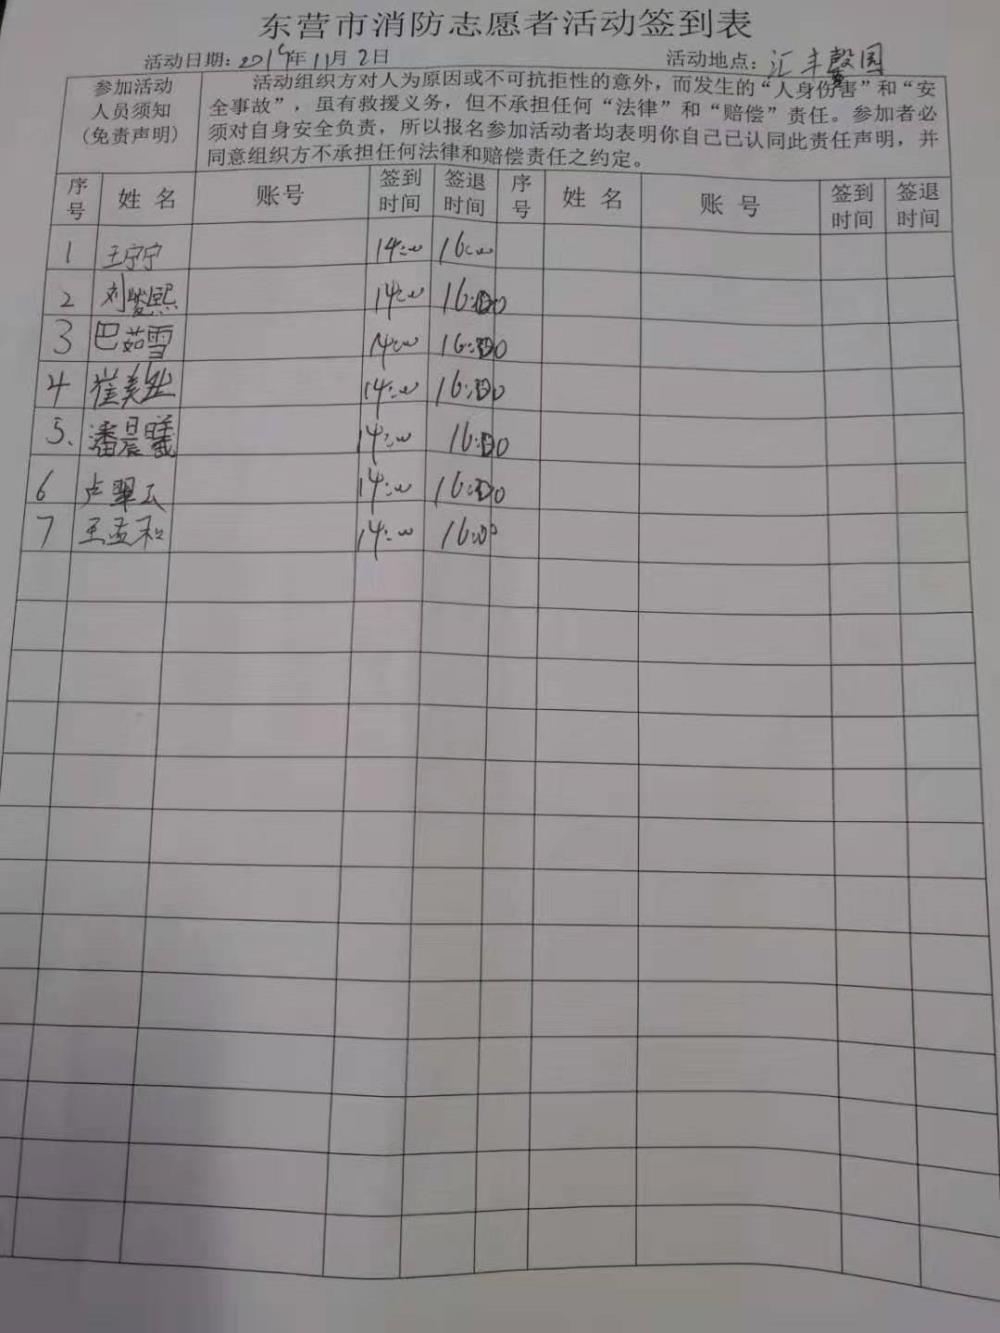 东营市消防志愿者活动签到表
活动日期：2019年11月2日 活动地点：汇丰馨园
参加活动
人员须知
（免责声明）
活动组织方对人为原因或不可抗拒性的意外，而发生的“人身伤害”和“安
全事故”，虽有救援义务，但不承担任何“法律”和“赔偿”责任。参加者必
须对自身安全负责，所以报名参加活动者均表明你自己已认同此责任声明，并
同意组织方不承担任何法律和赔偿责任之约定。
序号 姓名 账号 签到时间 签退时间 序号 姓名 账号 签到时间 签退时间
1 王宁宁 14:00 16:00
2 刘峻熙 14:00 16:00
3 巴茹雪 14:00 16:00
4 崔美 14:00 16:00
5、潘晨曦 14:00 16:00
6 卢翠云 14:00 16:00
7 王孟和 14:00 16:00